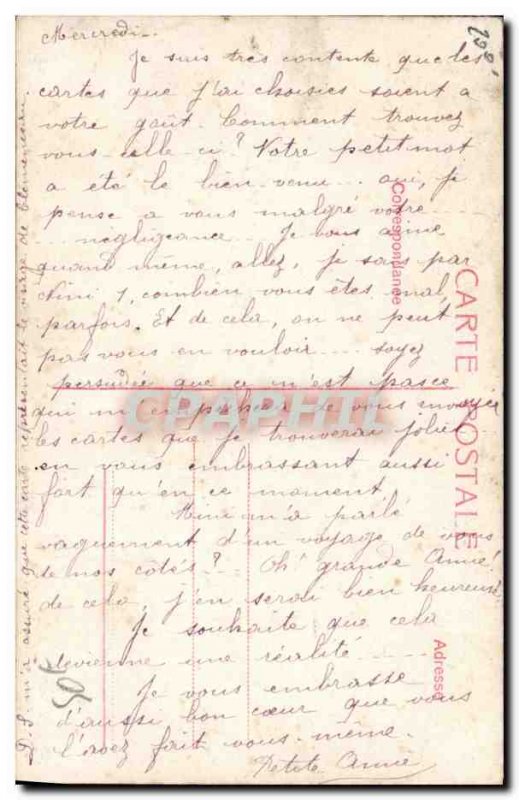 Mercredi...
Je suis très contente que les
cartes que j'ai choisies soient à
votre goût. Comment trouvez
vous celle ci? Votre petit mot
a été le bien venu.... oui, je
pense à vous malgré votre...
... négligeance... Je vous aime
quand même, allez, je sais par
combien vous êtes mal,
parfois. Et de cela, on ne peut
pas vous en vouloir..... soyez
persuadée que ce n'est pas ce
qui m'empêchera de vous envoyer
les cartes que je trouverai jolies
en vous embrassant aussi
fort qu'en ce moment.
m'a parlé
vaguement d'un voyage de vous
de nos côtés?.. Oh! grande Amie!
de cela, j'en serai bien heureuse.
Je souhaite que cela
devienne une réalité ......
Je vous embrasse
d'aussi bon cœur que vous
l'avez fait vous-même.
Petite Amie
P.S. m'a assuré que cette carte représentait le visage de
Correspondance
CARTE POSTALE
Adresse
CPAPHIL